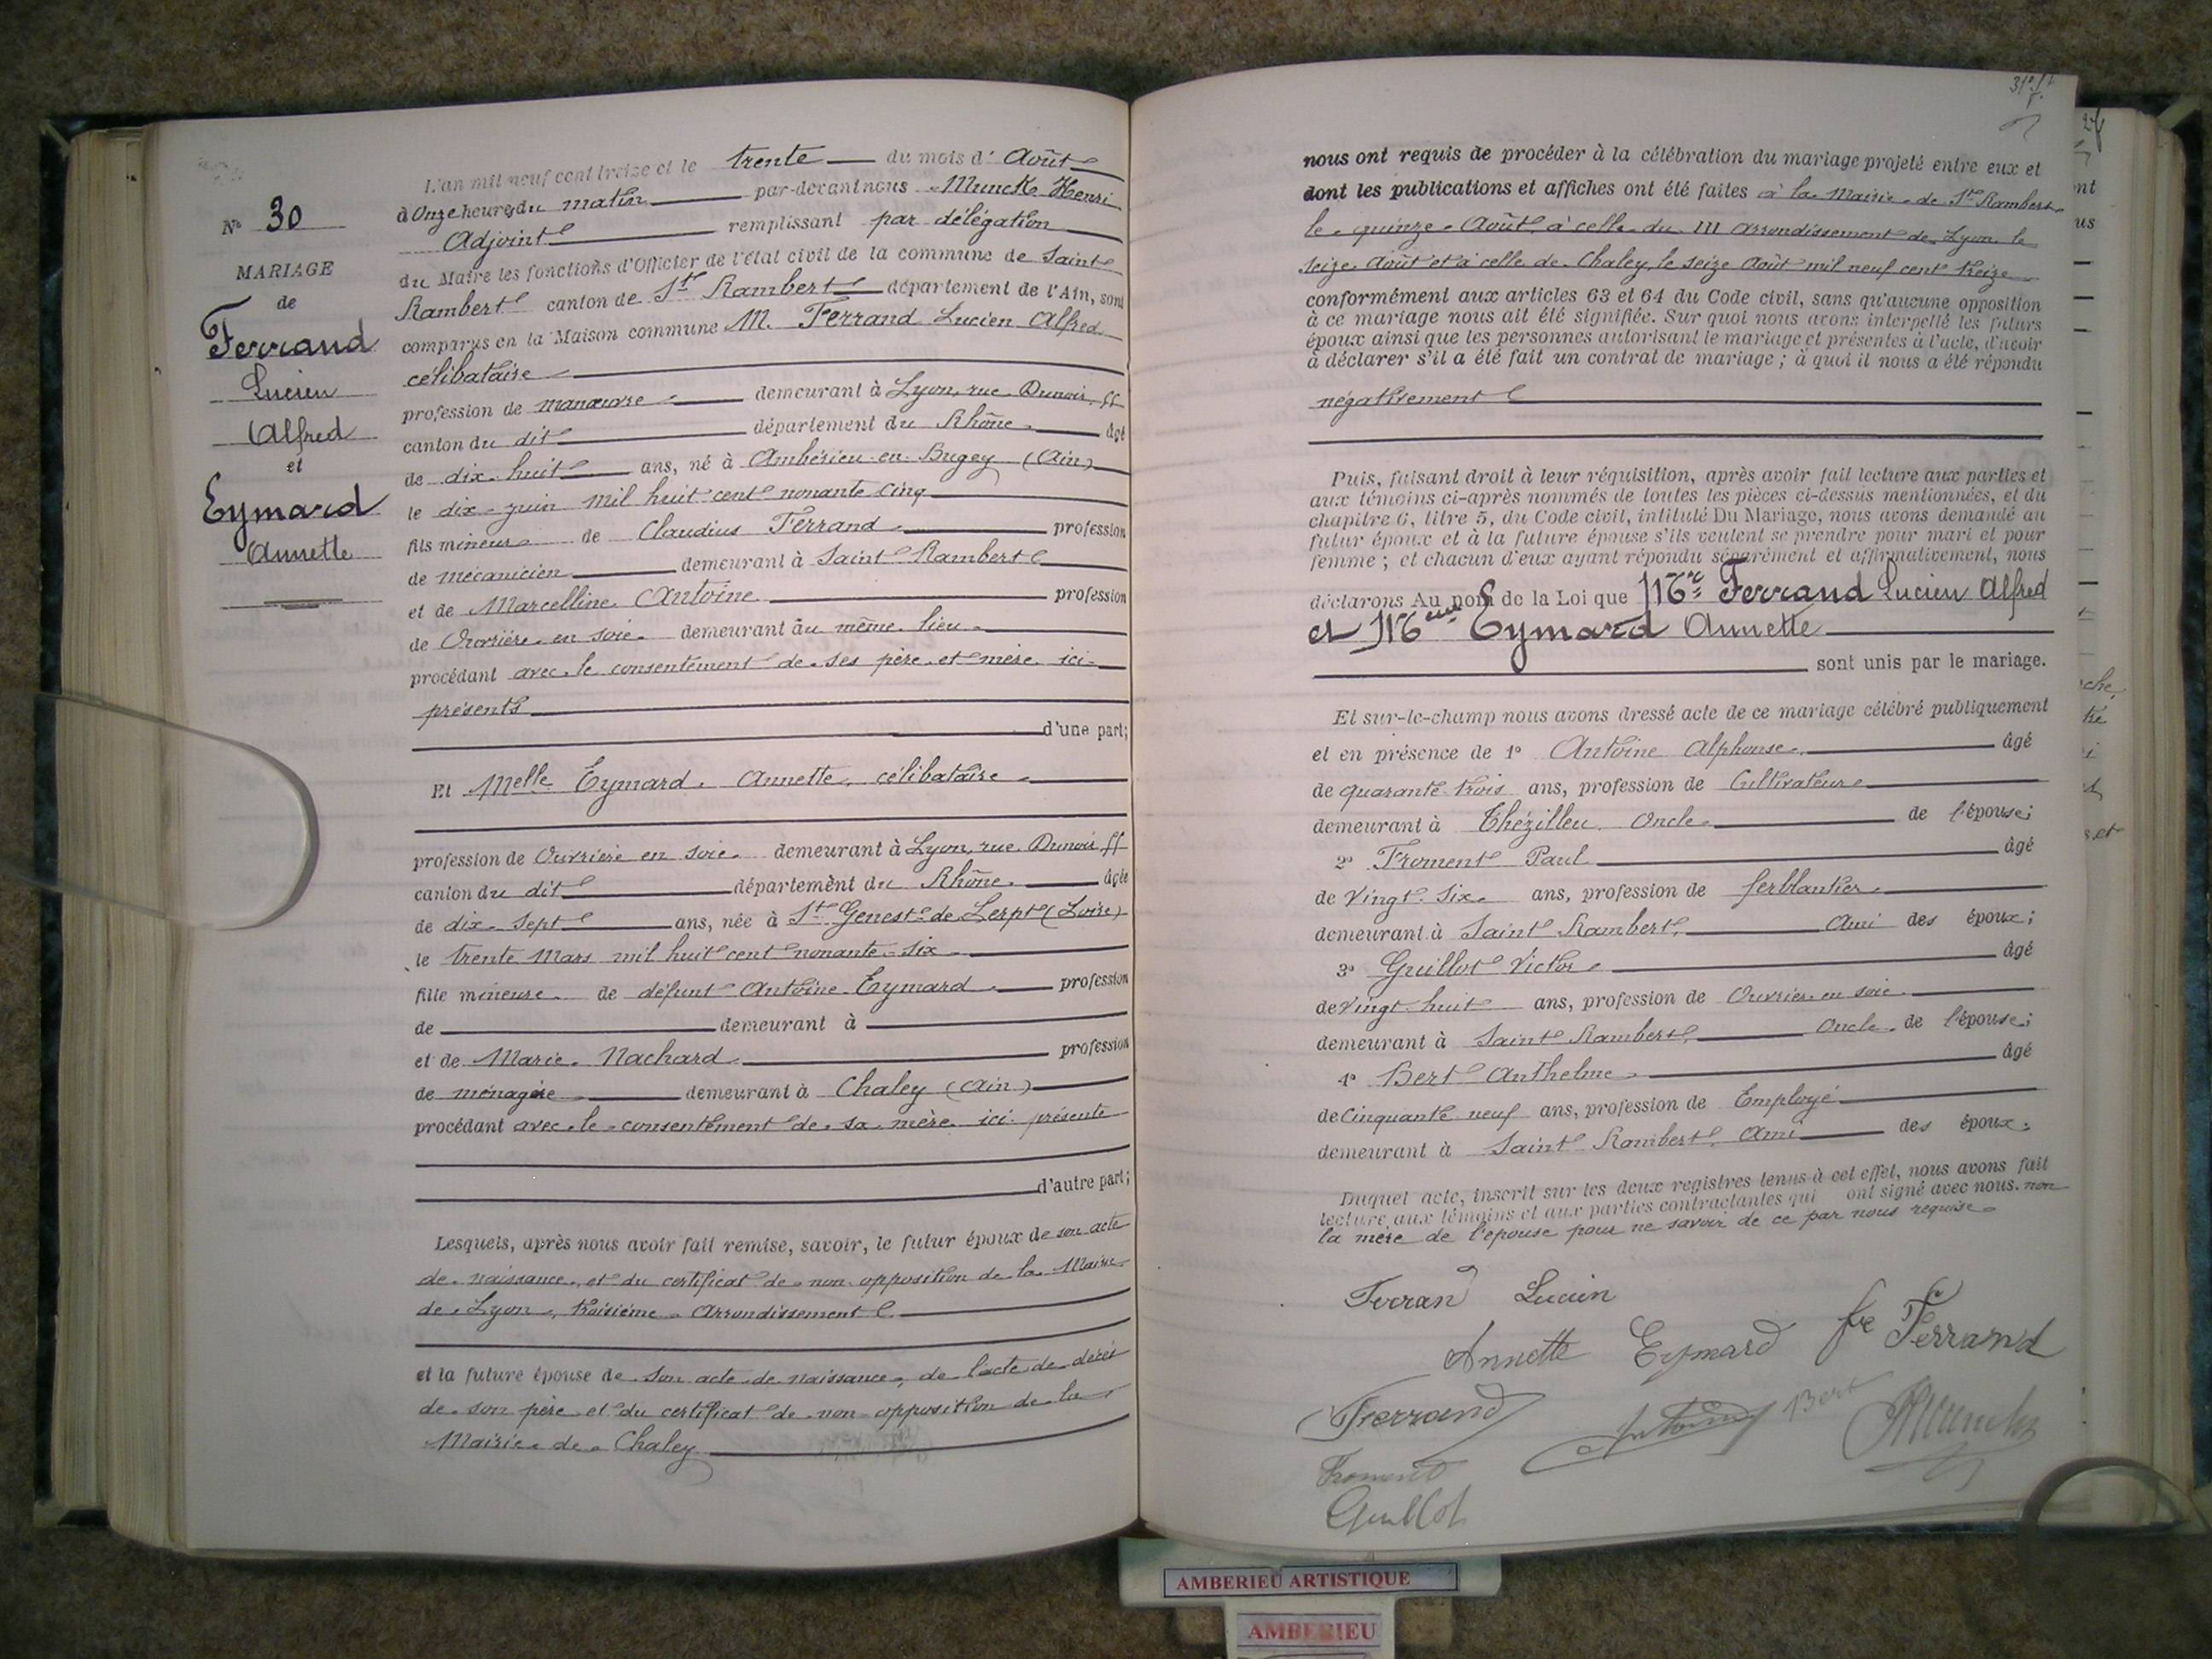 N° 30
MARIAGE
de
Ferrand
Lucien
Alfred
et
Eymard
Annette
L'an mil neuf cent treize et le trente du mois d' Août
à Onze heures du matin par-devant nous Munck Henri
Adjoint remplissant par délégation
du Maire les fonctions d'Officier de l'état civil de la commune de Saint
Rambert canton de St Rambert département de l'Ain, sont
comparus en la Maison commune M. Ferrand Lucien Alfred
célibataire
profession de manœuvre demeurant à Lyon, rue Dunoir, 55
canton du dit département du Rhône âgé
de dix-huit ans, né à Ambérieu-en-Bugey (Ain)
le dix-juin mil huit cent nonante cinq
fils mineur de Claudius Ferrand profession
de mécanicien demeurant à Saint Rambert
et de Marcelline Antoine profession
de Ouvrière en soie demeurant au même lieu
procédant avec le consentement de ses père et mère ici-
présents
d'une part;
Et Melle Eymard Annette, célibataire
profession de Ouvrière en soie demeurant à Lyon, rue Dunoir 55
canton du dit département du Rhône âgée
de dix-sept ans, née à St Genest de Lerpt (Loire)
le trente Mars mil huit cent nonante-six
fille mineure de défunt Antoine Eymard profession
de demeurant à
et de Marie Nachard profession
de ménagère demeurant à Chaley (Ain)
procédant avec le consentement de sa mère ici présente
d'autre part;
Lesquels, après nous avoir fait remise, savoir, le futur époux de son acte
de naissance, et du certificat de non opposition de la Mairie
de Lyon, troisième Arrondissement
et la future épouse de son acte de naissance, de l'acte de décès
de son père et du certificat de non-opposition de la
Mairie de Chaley
nous ont requis de procéder à la célébration du mariage projeté entre eux et
dont les publications et affiches ont été faites à la Mairie de St Rambert
le quinze Août, à celle du III arrondissement de Lyon le
seize Août et à celle de Chaley, le seize Août mil neuf cent treize
conformément aux articles 63 et 64 du Code civil, sans qu'aucune opposition
à ce mariage nous ait été signifiée. Sur quoi nous avons interpellé les futurs
époux ainsi que les personnes autorisant le mariage et présentes à l'acte, d'avoir
à déclarer s'il a été fait un contrat de mariage ; à quoi il nous a été répondu
négativement
Puis, faisant droit à leur réquisition, après avoir fait lecture aux parties et
aux témoins ci-après nommés de toutes les pièces ci-dessus mentionnées, et du
chapitre 6, titre 5, du Code civil, intitulé Du Mariage, nous avons demandé au
futur époux et à la future épouse s'ils veulent se prendre pour mari et pour
femme ; et chacun d'eux ayant répondu séparément et affirmativement, nous
déclarons Au nom de la Loi que Mr Ferrand Lucien Alfred
et Melle Eymard Annette
sont unis par le mariage.
Et sur-le-champ nous avons dressé acte de ce mariage célébré publiquement
et en présence de 1° Antoine Alphonse, âgé
de quarante-trois ans, profession de Cultivateur
demeurant à Thézillieu Oncle de l'épouse;
2° Froment Paul âgé
de vingt-six ans, profession de ferblantier
demeurant à Saint Rambert, Ami des époux;
3° Guillot Victor âgé
de vingt-huit ans, profession de Ouvrier en soie
demeurant à Saint Rambert, Oncle de l'épouse;
4° Bert Anthelme âgé
de Cinquante neuf ans, profession de Employé
demeurant à Saint Rambert Ami des époux.
Duquel acte, inscrit sur les deux registres tenus à cet effet, nous avons fait
lecture aux témoins et aux parties contractantes qui ont signé avec nous. non
la mère de l'épouse pour ne savoir de ce par nous requise
Ferrand Lucien
Annette Eymard fe Ferrand
Ferrand Antoine Bert Munck
Froment
Guillot
AMBERIEU ARTISTIQUE
AMBERIEU